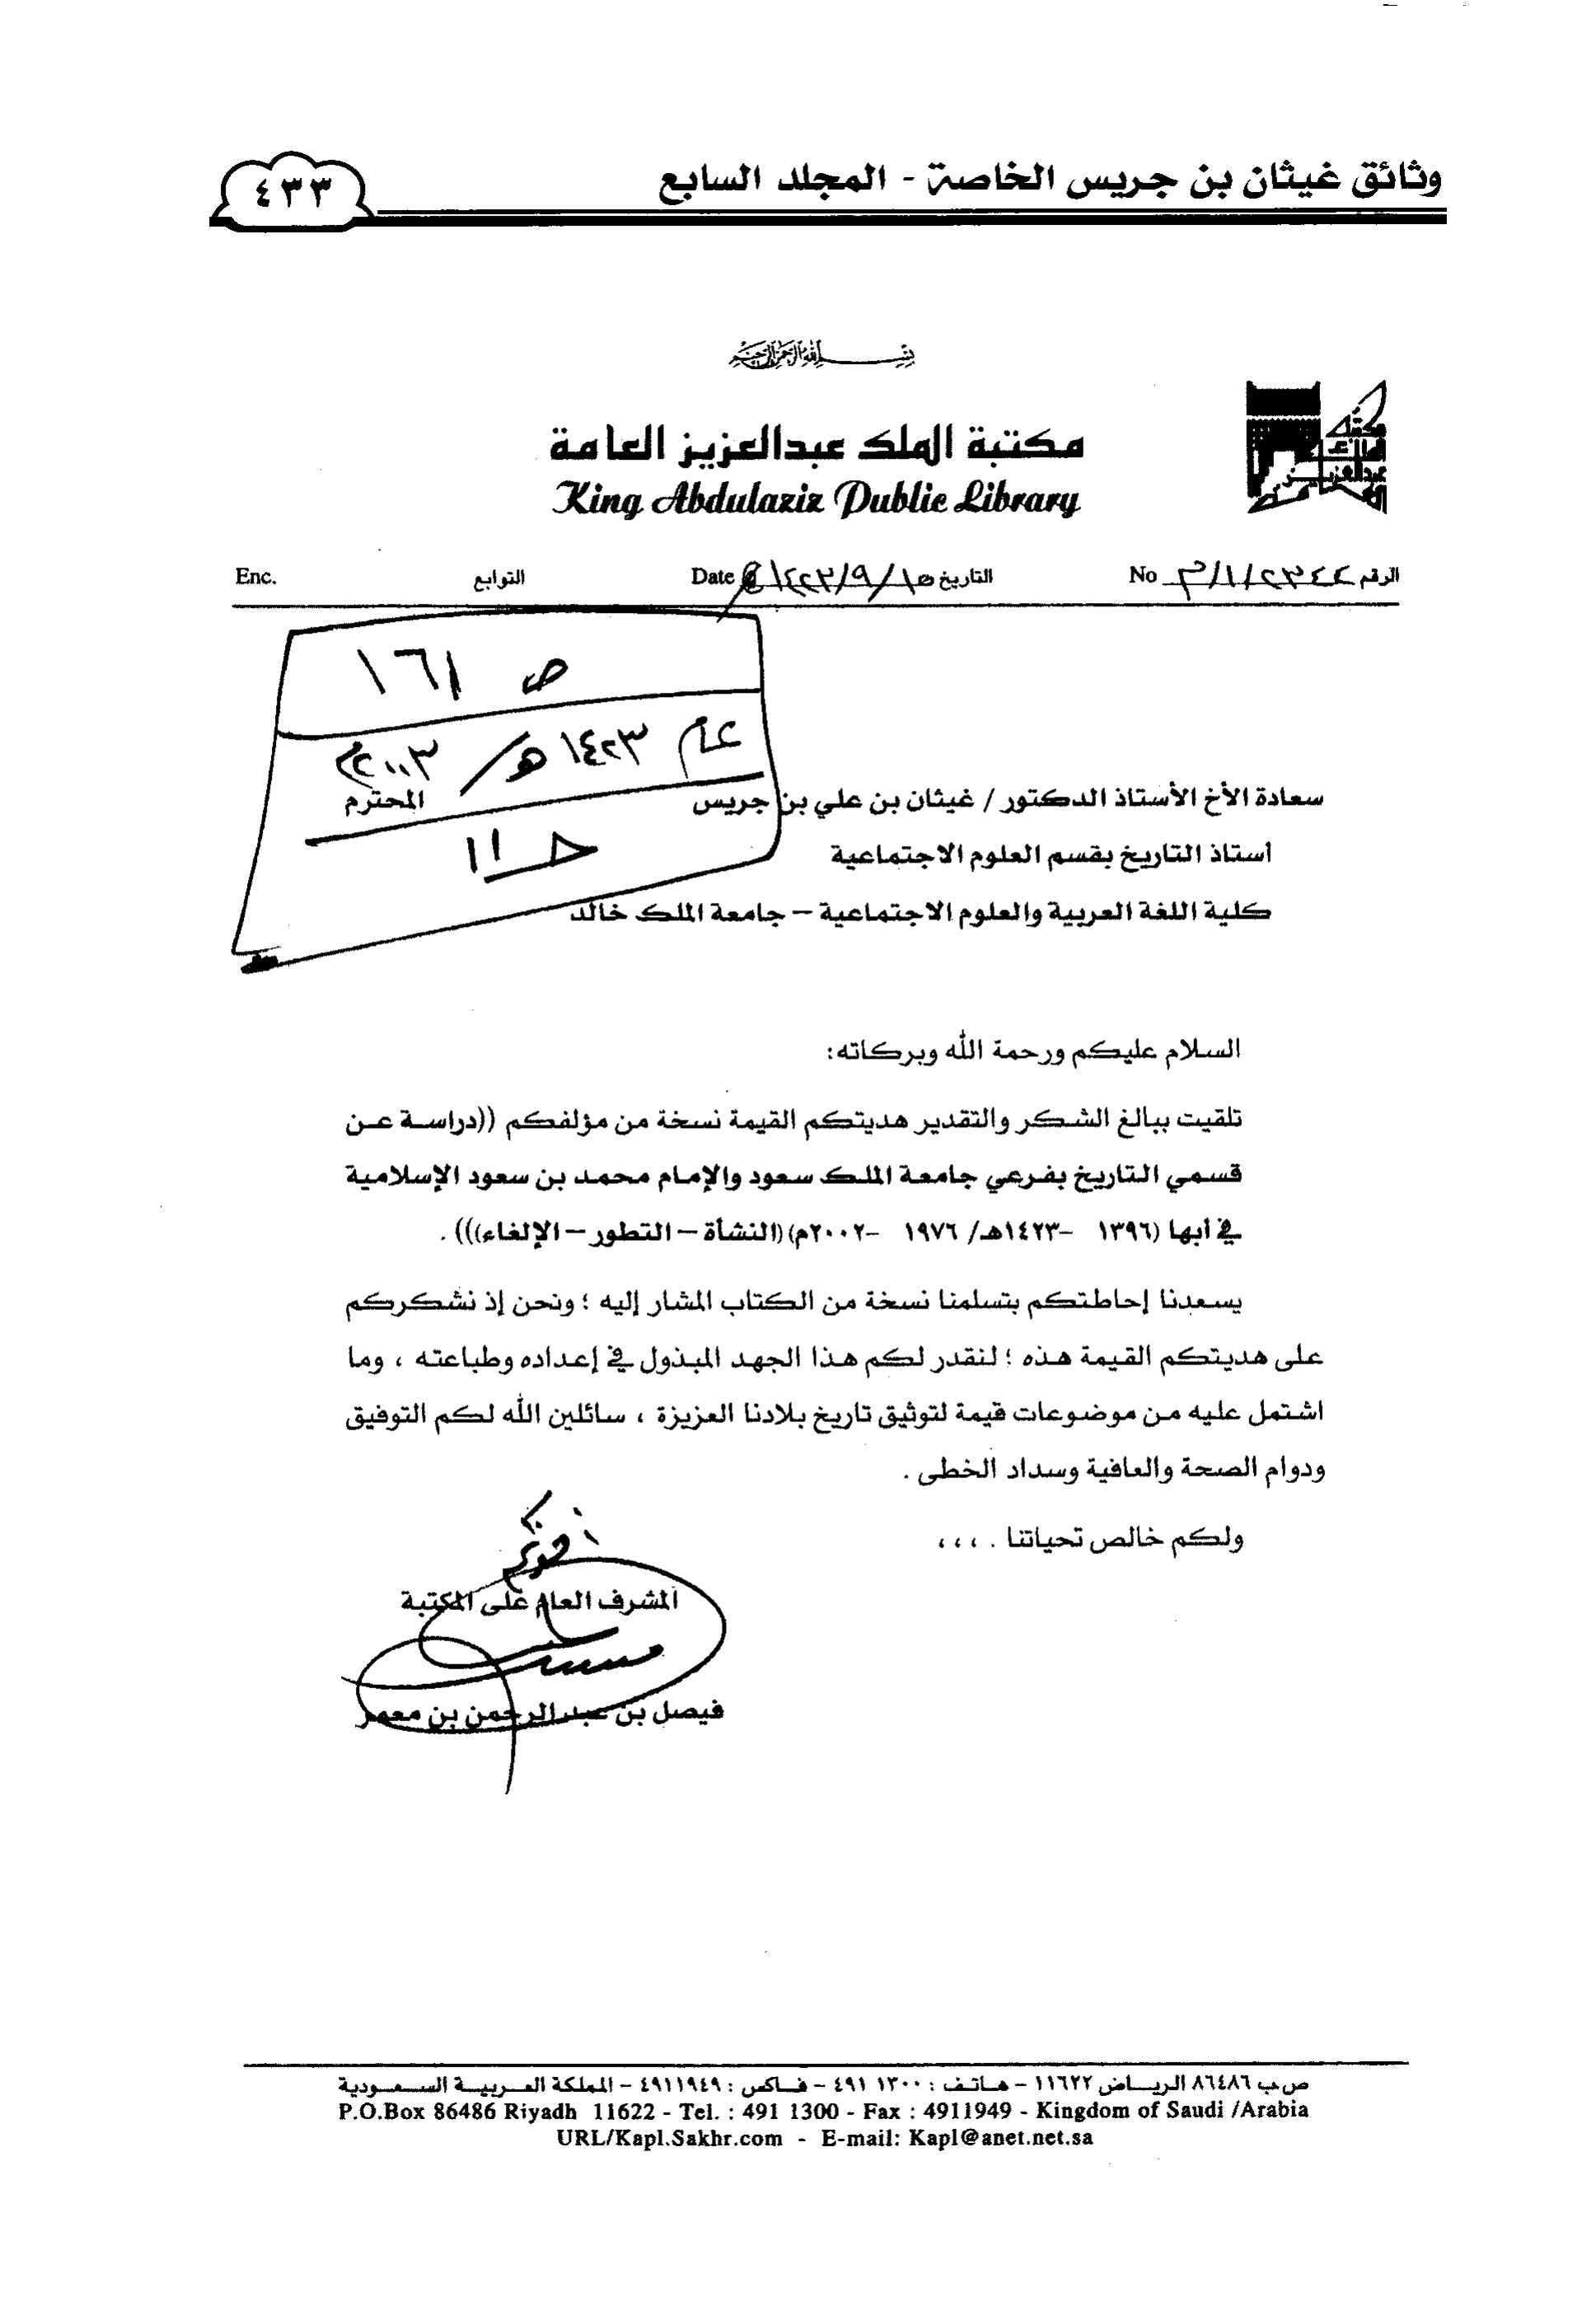 وثائق غيثان بن جريس الخاصة - المجلد السابع
٤٣٣
بسم الله الرحمن الرحيم
مكتبة الملك عبدالعزيز العامة
King Abdulaziz Public Library
الرقم No
التاريخ ١٤٢٣/٩/١٥ Date
التوابع Enc.
ص ١٦١
عام ١٤٢٣هـ/ ٢٠٠٣م
حـ ١١
سعادة الأخ الأستاذ الدكتور / غيثان بن علي بن جريس المحترم
استاذ التاريخ بقسم العلوم الاجتماعية
كلية اللغة العربية والعلوم الاجتماعية – جامعة الملك خالد
السلام عليكم ورحمة الله وبركاته:
تلقيت ببالغ الشكر والتقدير هديتكم القيمة نسخة من مؤلفكم ((دراسة عن
قسمي التاريخ بفرعي جامعة الملك سعود والإمام محمد بن سعود الإسلامية
في أبها (١٣٩٦ -١٤٢٣هـ/ ١٩٧٦ -٢٠٠٢م)(النشأة – التطور – الإلغاء))) .
يسعدنا إحاطتكم بتسلمنا نسخة من الكتاب المشار إليه ؛ ونحن إذ نشكركم
على هديتكم القيمة هذه ؛ لنقدر لكم هذا الجهد المبذول في إعداده وطباعته ، وما
اشتمل عليه من موضوعات قيمة لتوثيق تاريخ بلادنا العزيزة ، سائلين الله لكم التوفيق
ودوام الصحة والعافية وسداد الخطى .
ولكم خالص تحياتنا . ، ، ،
المشرف العام على المكتبة
فيصل بن عبد الرحمن بن معمر
ص ب ٨٦٤٨٦ الرياض ١١٦٢٢ – هاتف : ١٣٠٠ ٤٩١ – فاكس : ٤٩١١٩٤٩ – المملكة العربية السعودية
P.O.Box 86486 Riyadh 11622 - Tel. : 491 1300 - Fax : 4911949 - Kingdom of Saudi /Arabia
URL/Kapl.Sakhr.com - E-mail: Kapl@anet.net.sa